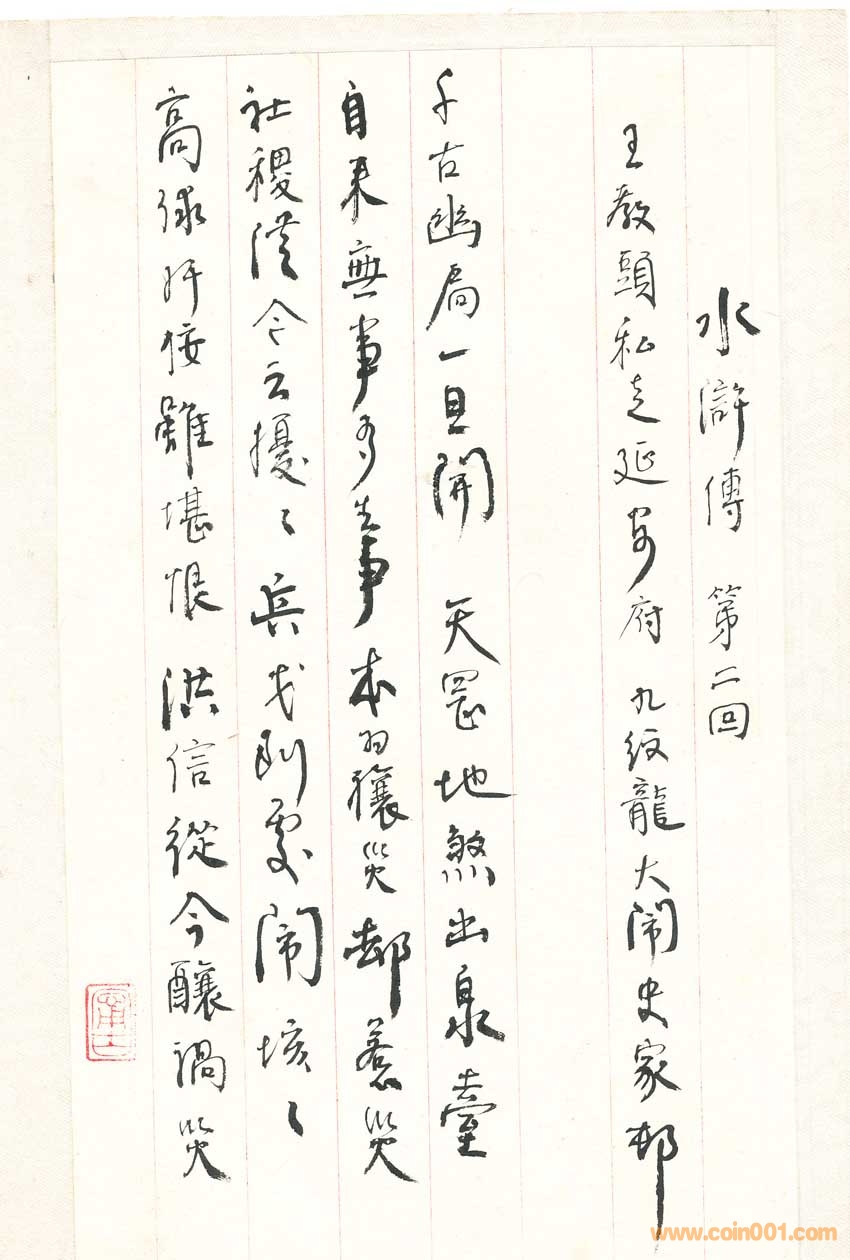 水滸傳 第二回
王教頭私走延安府 九紋龍大閙史家邨
千古幽扃一旦開 天罡地煞出泉臺
自来無事多生事 本為禳災却惹災
社稷從今云擾〻 兵戈到處閙垓〻
高俅奸佞雖堪恨 洪信從今釀禍災
www.coin001.com